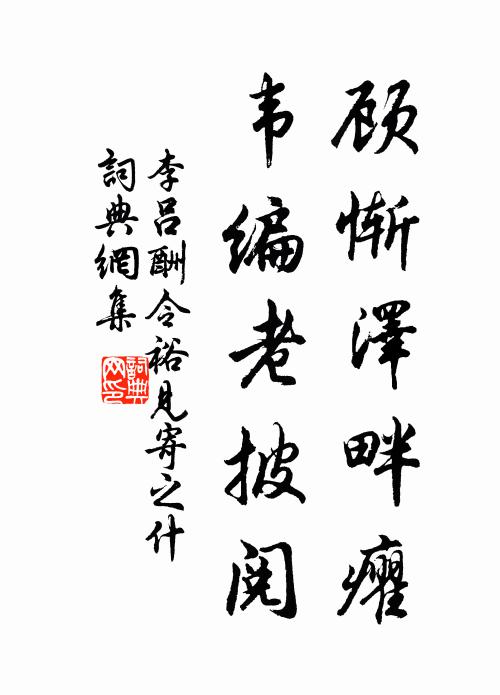 顾惭澤畔癯
韦编老披阅
李吕酬令裕見寄之什
詞典網集
詞典網印